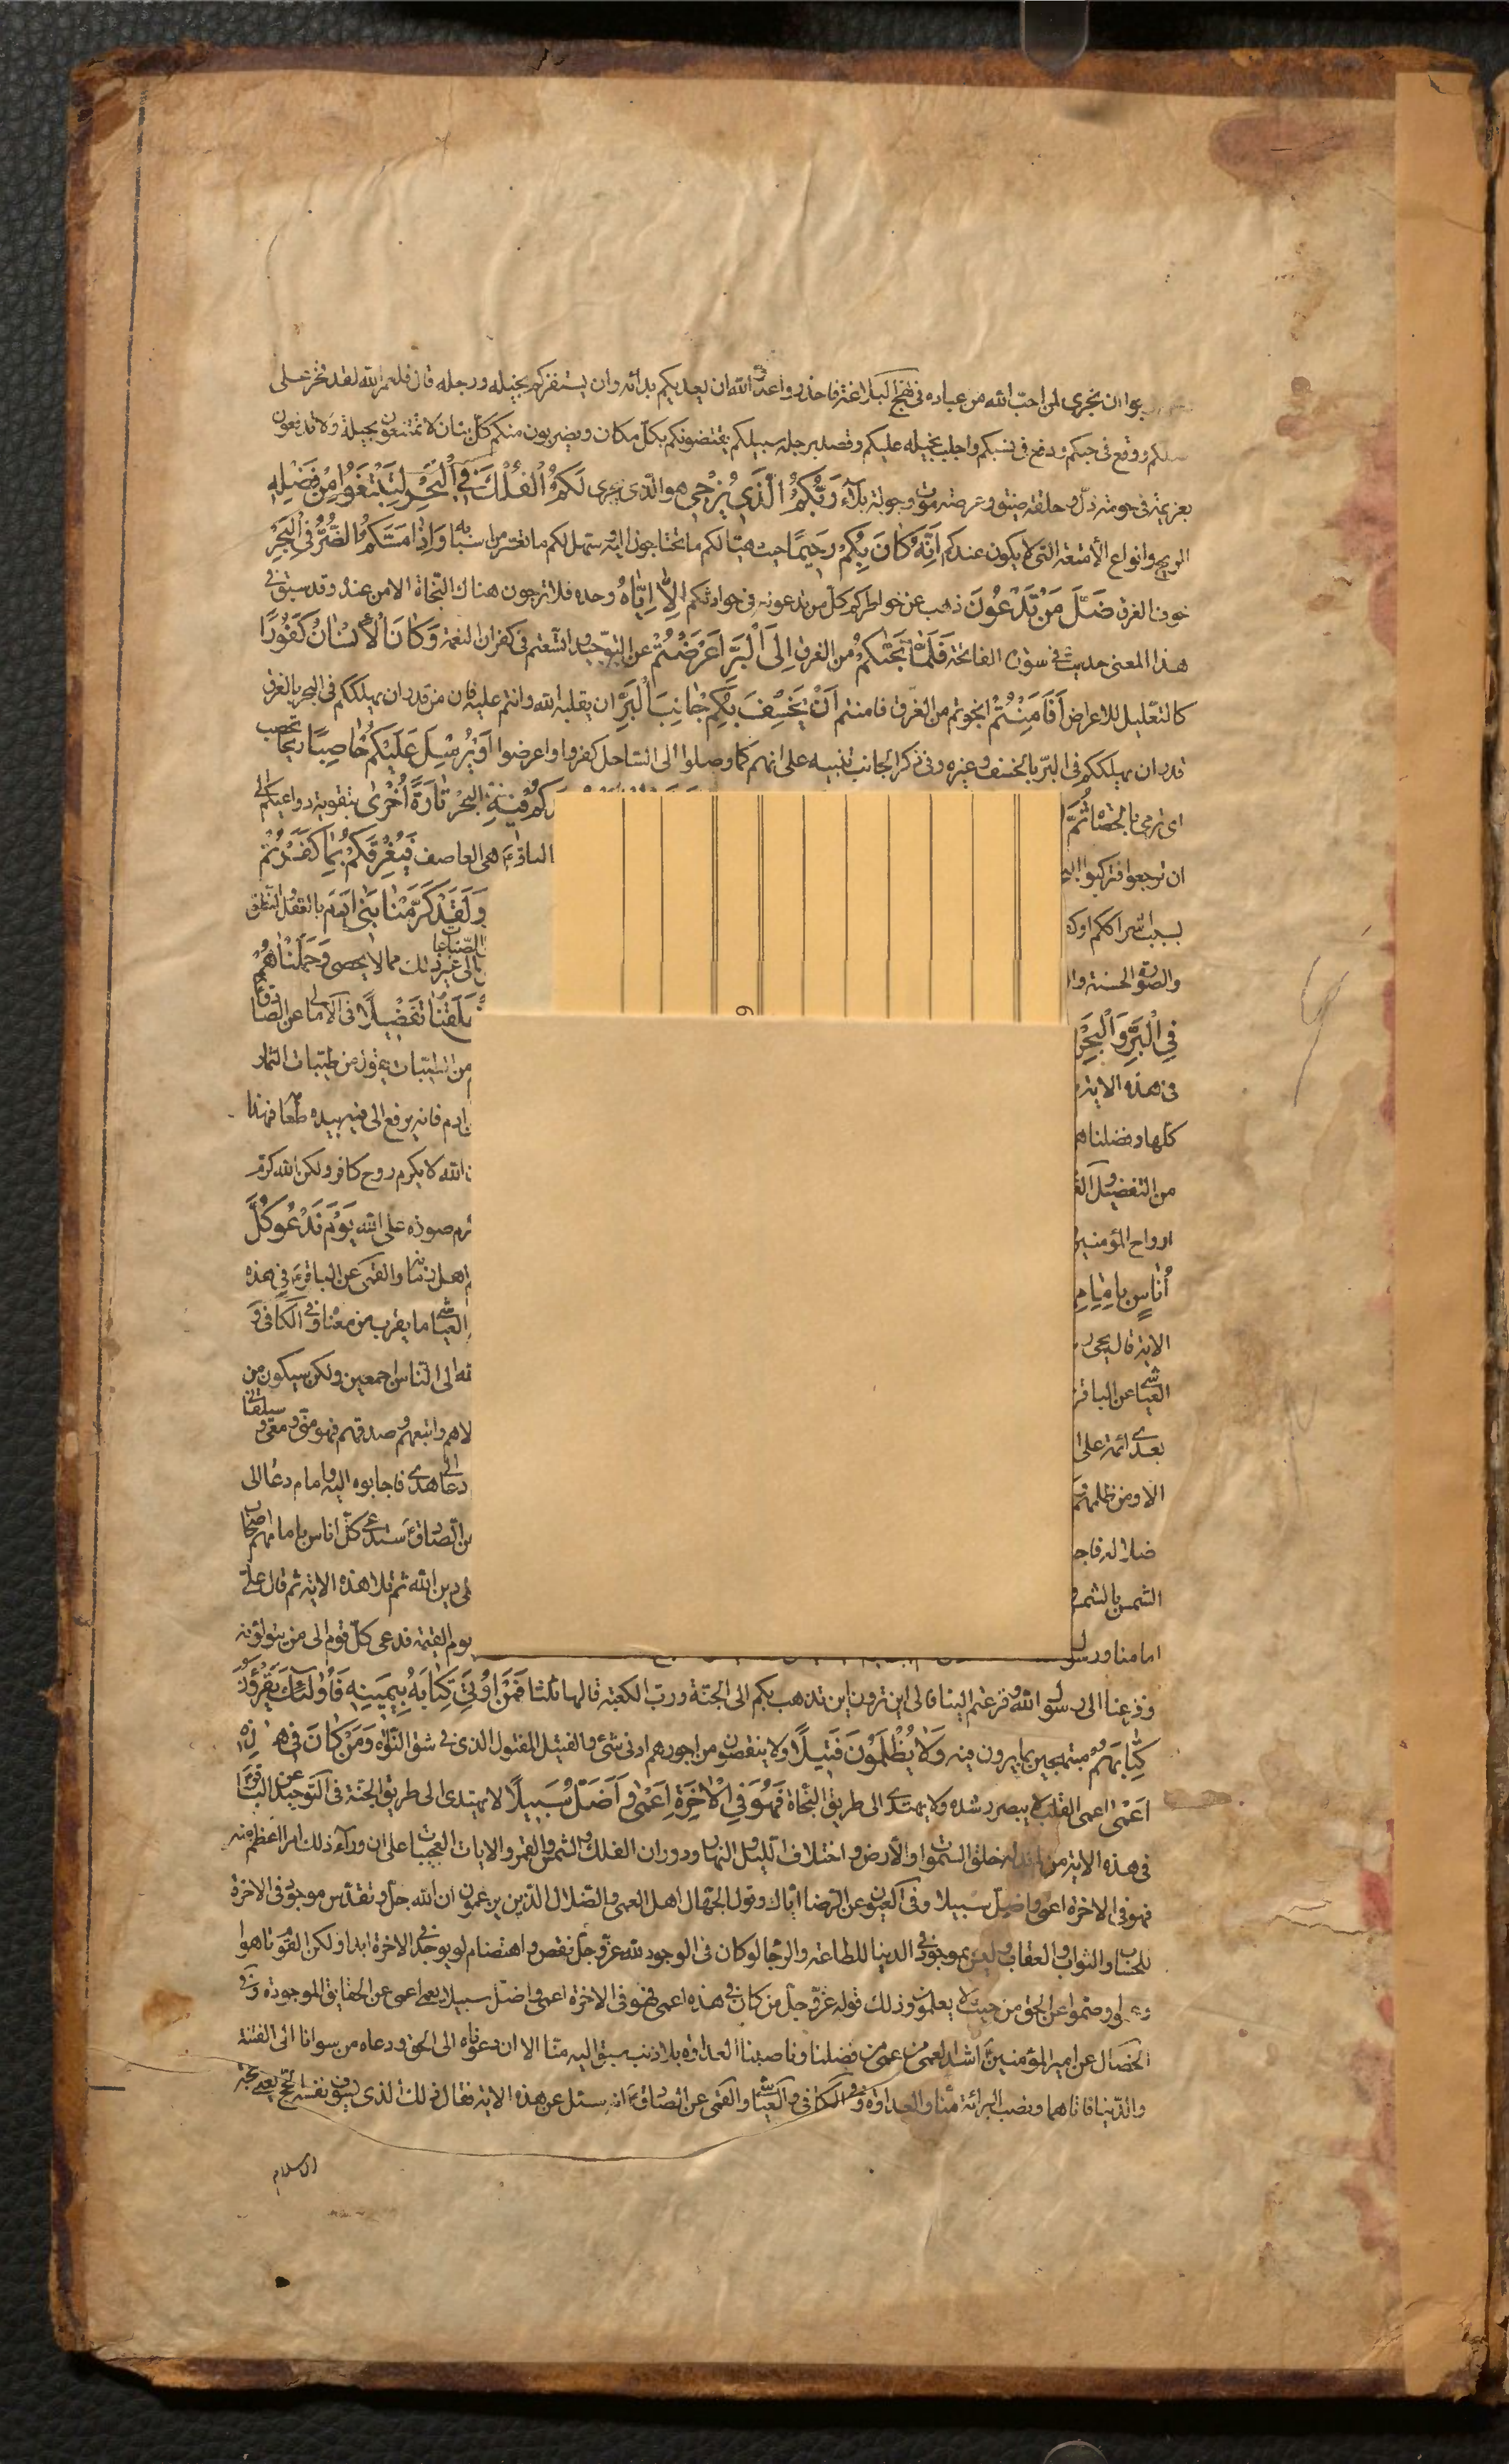 بوا ان نجرى لمن احب الله من عباده فى نهج البلاغة فاحذروا عدو الله ان يعديكم بدائه وان يستفزكم بخيله ورجله قال فلعمر الله لقد فخر على
ووقع فى حسبكم ودفع فى نسبكم واجلب بخيله عليكم وقصد برجله سبيلكم يقتنصونكم بكل مكان ويضربون منكم كل بنان لا تمتنعون بحيلة ولا تدفعون
بعزيمة فى حومة ذل وحلقة ضيق وعرصة موت وجولة بلاء رَبُّكُمُ الَّذِي يُزْجِي هو الذى يجرى لَكُمُ الْفُلْكَ فِي الْبَحْرِ لِتَبْتَغُوا مِنْ فَضْلِهِ
الريح وانواع الأمتعة التى لا يكون عندكم اِنَّهُ كَانَ بِكُمْ رَحِيمًا حيث هيئا لكم ما تحتاجون اليه وسهل لكم ما تعسر من اسبابه وَاِذَا مَسَّكُمُ الضُّرُّ فِي الْبَحْرِ
خوف الغرق ضَلَّ مَنْ تَدْعُونَ ذهب عن خواطركم كل من تدعونه فى حوادثكم اِلَّا اِيَّاهُ وحده فلا ترجون هناك النجاة الا من عنده وقد سبق فى
هذا المعنى حديث فى سورة الفاتحة فَلَمَّا نَجَّيكُمْ من الغرق اِلَى الْبَرِّ اَعْرَضْتُمْ عن التوحيد واتسعتم فى كفران النعمة وَكَانَ الْاِنْسَانُ كَفُورًا
كالتعليل للاعراض اَفَاَمِنْتُمْ انجوتم من الغرق فامنتم اَنْ يَخْسِفَ بِكُمْ جَانِبَ الْبَرِّ ان يقلبه الله وانتم عليه فان من قدر ان يهلككم فى البحر بالغرق
قدر ان يهلككم فى البر بالخسف وغيره وفى ذكر الجانب تنبيه على انهم كما وصلوا الى الساحل كفروا واعرضوا اَوْ يُرْسِلَ عَلَيْكُمْ حَاصِبًا ريحا تحصب
اى ترمى بالحصاء ثُمَّ فِيهِ البحر تَارَةً اُخْرَى بتقوية دواعيكم الى
ان ترجعوا فتركبوا الباقر ع هى العاصف فَيُغْرِقَكُمْ بِمَا كَفَرْتُمْ
بسبب اشراككم وَلَقَدْ كَرَّمْنَا بَنِي اٰدَمَ بالعقل والنطق
والصورة الحسنة الصناعات الى غير ذلك مما لا يحصى وَحَمَلْنَاهُمْ
فِي الْبَرِّ وَالْبَحْرِ خَلَقْنَا تَفْضِيلًا فى الامالى عن الصادق ع
فى هذه الاية من الطيبات يقول من طيبات الثمار
كلها وفضلناهم ادم فانه يرفع الى فيه بيده طعامه فهذا
من التفضيل الله لا يكرم روح كافر ولكن الله كرم
ارواح المؤمنين على الله يَوْمَ نَدْعُو كُلَّ
اُنَاسٍ بِاِمَامِهِمْ اهل زمانه والقمى عن الباقر ع فى هذه
الاية قال يجىء العياشى ما يقرب من معناه وفى الكافى و
العياشى عن الباقر الى الناس اجمعين ولكن سيكون من
بعدى ائمة على والاهم واتبعهم وصدقهم فهو منى ومعى وسيلقانى
الا ومن ظلمهم دعا الى هدى فاجابوه اليه وامام دعا الى
ضلالة عن الصادق ع سيدعى كل اناس بامامهم اصحاب
الشمس بالشمس على دين الله ثم تلا هذه الاية ثم قال على
امامنا ورسول يوم القيمة فدعى كل قوم الى من يتولونه
وفزعنا الى رسول الله وفزعتم الينا فالى اين ترون اين تذهب بكم الى الجنة ورب الكعبة قالها ثلثا فَمَنْ اُوتِيَ كِتَابَهُ بِيَمِينِهِ فَاُولَئِكَ يَقْرَؤُنَ
كِتَابَهُمْ مبتهجين بما يرون فيه وَلَا يُظْلَمُونَ فَتِيلًا ولا ينقصون من اجورهم ادنى شئ والفتيل المفتول الذى فى شق النواة وَمَنْ كَانَ فِي هَذِهِ
اَعْمَى اعمى القلب لا يبصر رشده ولا يهتدى الى طريق النجاة فَهُوَ فِي الْاٰخِرَةِ اَعْمَى وَاَضَلُّ سَبِيلًا لا يهتدى الى طريق الجنة فى التوحيد عن الباقر ع
فى هذه الاية من لم يدله خلق السموات والأرض واختلاف الليل والنهار ودوران الفلك والشمس والقمر والايات العجيبات على ان وراء ذلك امرا اعظم منه
فهو فى الاخرة اعمى واضل سبيلا وفى العيون عن الرضا اياك وقول الجهال اهل العمى والضلال الذين يزعمون ان الله جل وتقدس موجود فى الاخرة
للحساب والثواب والعقاب وليس بموجود فى الدنيا للطاعة والرجا ولو كان فى الوجود لله عز وجل نقص واهتضام لم يوجد فى الاخرة ابدا ولكن القوم تاهوا
وعموا وصموا عن الحق من حيث لا يعلمون وذلك قوله عز وجل من كان فى هذه اعمى فهو فى الاخرة اعمى واضل سبيلا يعنى اعمى عن الحقايق الموجودة وفى
الخصال عن امير المؤمنين ع اشد العمى من عمى من فضلنا وناصبنا العداوة بلا ذنب سبق اليه منا الا ان دعوناه الى الحق ودعاه من سوانا الى الفتنة
والدنيا فاتاهما ونصب البرائة منا والعداوة وفى الكافى والعياشى والقمى عن الصادق ع انه سئل عن هذه الاية فقال ذلك الذى يسوف نفسه الحج يعنى حجة
الاسلام